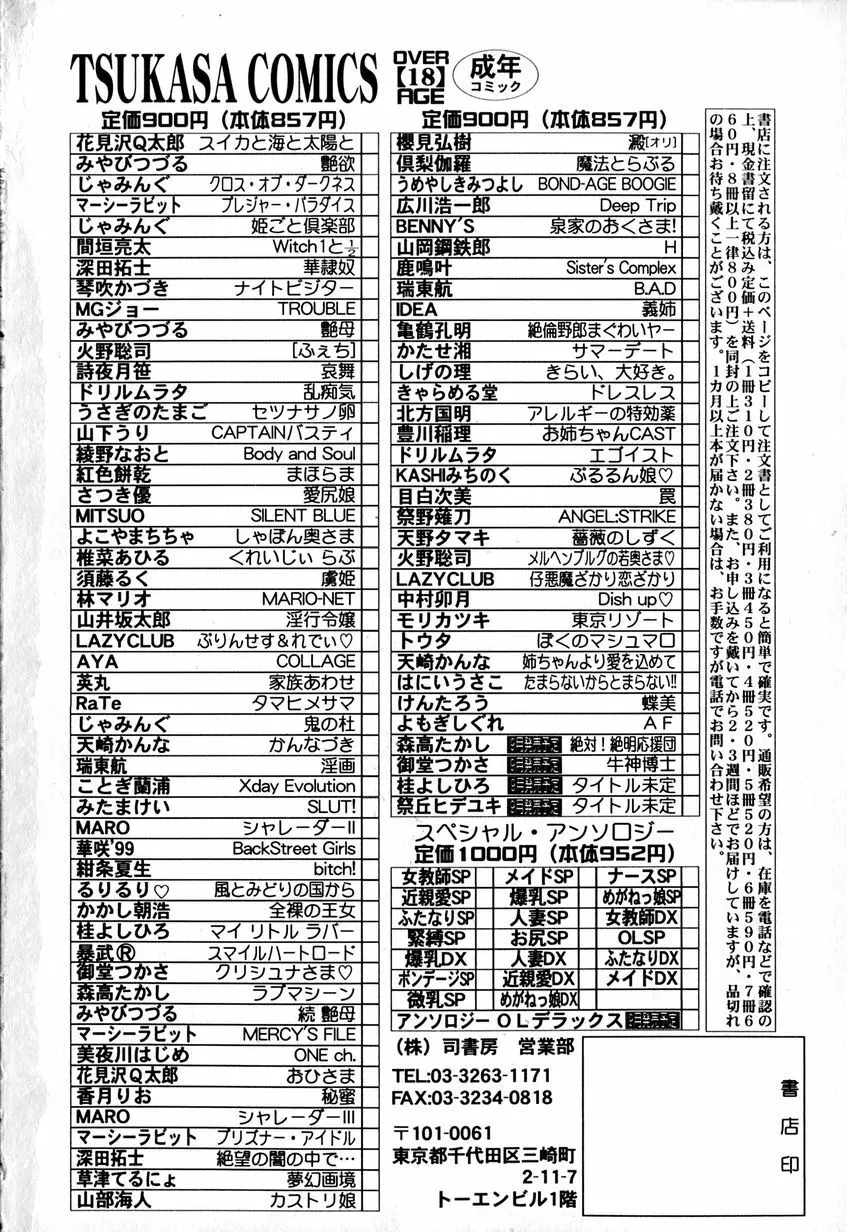 TSUKASA COMICS
OVER
【18】
AGE
成年
コミック
定価900円（本体857円）
花見沢Q太郎 スイカと海と太陽と
みやびつづる 艶欲
じゃみんぐ クロス・オブ・ダークネス
マーシーラビット プレジャー・パラダイス
じゃみんぐ 姫ごと倶楽部
間垣亮太 Witch1と½
深田拓士 華隷奴
琴吹かづき ナイトビジター
MGジョー TROUBLE
みやびつづる 艶母
火野聡司 [ふぇち]
詩夜月笹 哀舞
ドリルムラタ 乱痴気
うさぎのたまご セツナサノ卵
山下うり CAPTAINバスティ
綾野なおと Body and Soul
紅色餅乾 まほらま
さつき優 愛尻娘
MITSUO SILENT BLUE
よこやまちちゃ しゃぼん奥さま
椎菜あひる くれいじぃ らぶ
須藤るく 虜姫
林マリオ MARIO-NET
山井坂太郎 淫行令嬢
LAZYCLUB ぷりんせす&れでぃ♡
AYA COLLAGE
英丸 家族あわせ
RaTe タマヒメサマ
じゃみんぐ 鬼の杜
天崎かんな かんなづき
瑞東航 淫画
ことぎ蘭浦 Xday Evolution
みたまけい SLUT!
MARO シャレーダーII
華咲'99 BackStreet Girls
紺条夏生 bitch!
るりるり♡ 風とみどりの国から
かかし朝浩 全裸の王女
桂よしひろ マイ リトル ラバー
暴武Ⓡ スマイルハートロード
御堂つかさ クリシュナさま♡
森高たかし ラブマシーン
みやびつづる 続 艶母
マーシーラビット MERCY'S FILE
美夜川はじめ ONE ch.
花見沢Q太郎 おひさま
香月りお 秘蜜
MARO シャレーダーIII
マーシーラビット プリズナー・アイドル
深田拓士 絶望の闇の中で…
草津てるにょ 夢幻画境
山部海人 カストリ娘
定価900円（本体857円）
櫻見弘樹 澱[オリ]
倶梨伽羅 魔法とらぶる
うめやしきみつよし BOND-AGE BOOGIE
広川浩一郎 Deep Trip
BENNY'S 泉家のおくさま!
山岡鋼鉄郎 H
鹿鳴叶 Sister's Complex
瑞東航 B.A.D
IDEA 義姉
亀鶴孔明 絶倫野郎まぐわいヤー
かたせ湘 サマーデート
しげの理 きらい、大好き。
きゃらめる堂 ドレスレス
北方国明 アレルギーの特効薬
豊川稲理 お姉ちゃんCAST
ドリルムラタ エゴイスト
KASHIみちのく ぷるるん娘♡
目白次美 罠
祭野薙刀 ANGEL:STRIKE
天野タマキ 薔薇のしずく
火野聡司 メルヘンブルグの若奥さま♡
LAZYCLUB 仔悪魔ざかり恋ざかり
中村卯月 Dish up♡
モリカツキ 東京リゾート
トウタ ぼくのマシュマロ
天崎かんな 姉ちゃんより愛を込めて
はにいうさこ たまらないからとまらない!!
けんたろう 蝶美
よもぎしぐれ A F
森高たかし 絶対！絶明応援団
御堂つかさ 牛神博士
桂よしひろ タイトル未定
祭丘ヒデユキ タイトル未定
スペシャル・アンソロジー
定価1000円（本体952円）
女教師SP メイドSP ナースSP
近親愛SP 爆乳SP めがねっ娘SP
ふたなりSP 人妻SP 女教師DX
緊縛SP お尻SP OLSP
爆乳DX 人妻DX ふたなりDX
ボンデージSP 近親愛DX メイドDX
微乳SP めがねっ娘DX
アンソロジーOLデラックス
(株) 司書房 営業部
TEL:03-3263-1171
FAX:03-3234-0818
〒101-0061
東京都千代田区三崎町
2-11-7
トーエンビル1階
書店印
書店に注文される方は、このページをコピーして注文書としてご利用になると簡単で確実です。通販希望の方は、在庫を電話などで確認の
上、現金書留にて税込み定価＋送料（1冊310円・2冊380円・3冊450円・4冊520円・5冊520円・6冊590円・7冊6
60円・8冊以上一律800円）を同封の上ご注文下さい。また、お申し込みを戴いてから2・3週間ほどでお届けしていますが、品切れ
の場合お待ち戴くことがございます。1カ月以上本が届かない場合は、お手数ですが電話でお問い合わせ下さい。